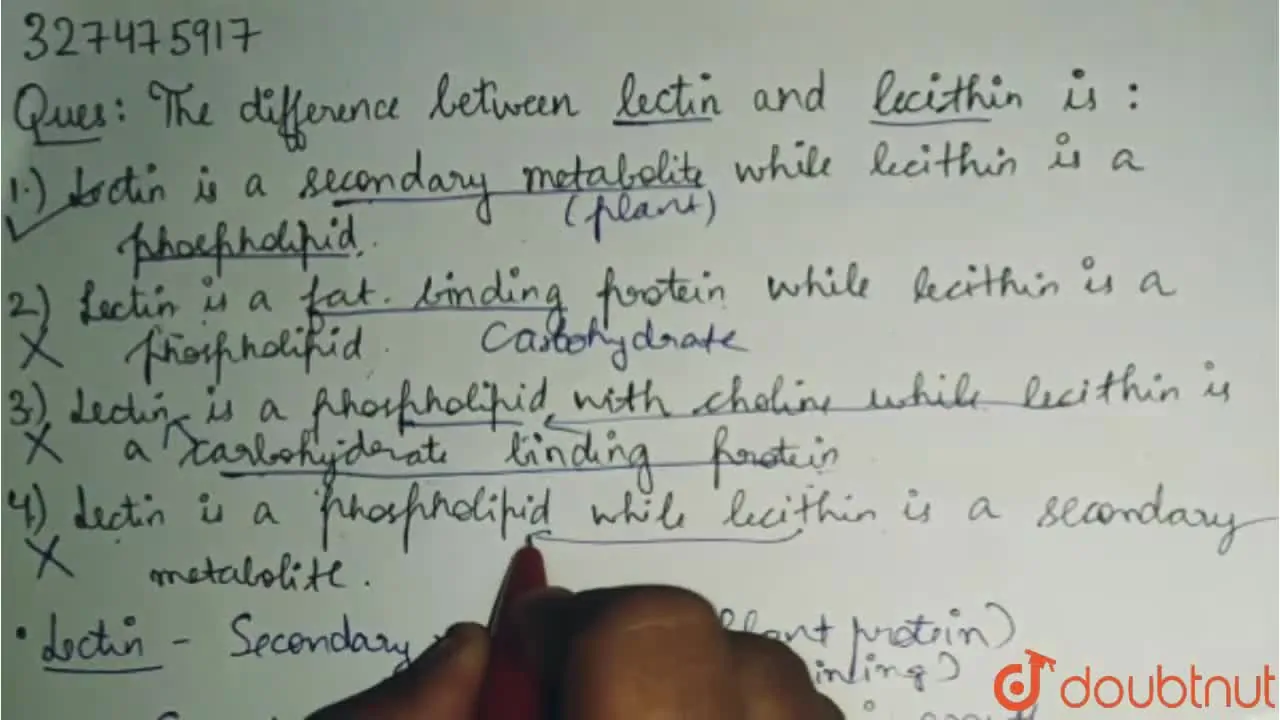 327475917
Ques: The difference between lectin and lecithin is :
1.) Lectin is a secondary metabolite while lecithin is a
(plant)
phospholipid.
2) Lectin is a fat. binding protein while lecithin is a
phospholipid. Carbohydrate
3) Lectin is a phospholipid with choline while lecithin is
a carbohyderate binding protein
4) Lectin is a phospholipid while lecithin is a secondary
metabolite.
• Lectin - Secondary plant protein)
doubtnut